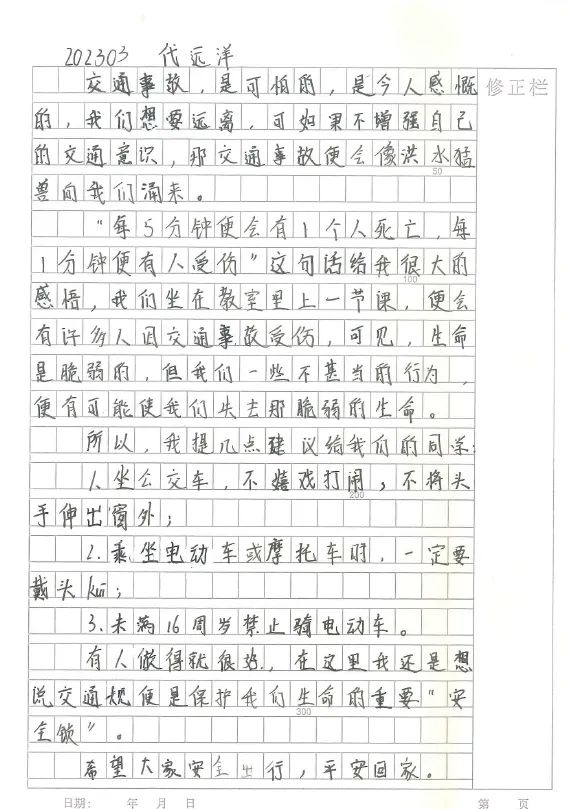 202303 代远洋
交通事故，是可怕的，是令人感慨
修正栏
的，我们想要远离，可如果不增强自己
的交通意识，那交通事故便会像洪水猛
50
兽向我们涌来。
“每5分钟便会有1个人死亡，每
1分钟便有人受伤”这句话给我很大的
100
感悟，我们坐在教室里上一节课，便会
有许多人因交通事故受伤，可见，生命
是脆弱的，但我们一些不甚当的行为，
便有可能使我们失去那脆弱的生命。
所以，我提几点建议给我们的同学：
1.坐公交车，不嬉戏打闹，不将头
200
手伸出窗外；
2.乘坐电动车或摩托车时，一定要
戴头kuī；
3.未满16周岁禁止骑电动车。
有人做得就很好，在这里我还是想
说交通规便是保护我们生命的重要“安
300
全锁”。
希望大家安全出行，平安回家。
日期： 年 月 日 第 页